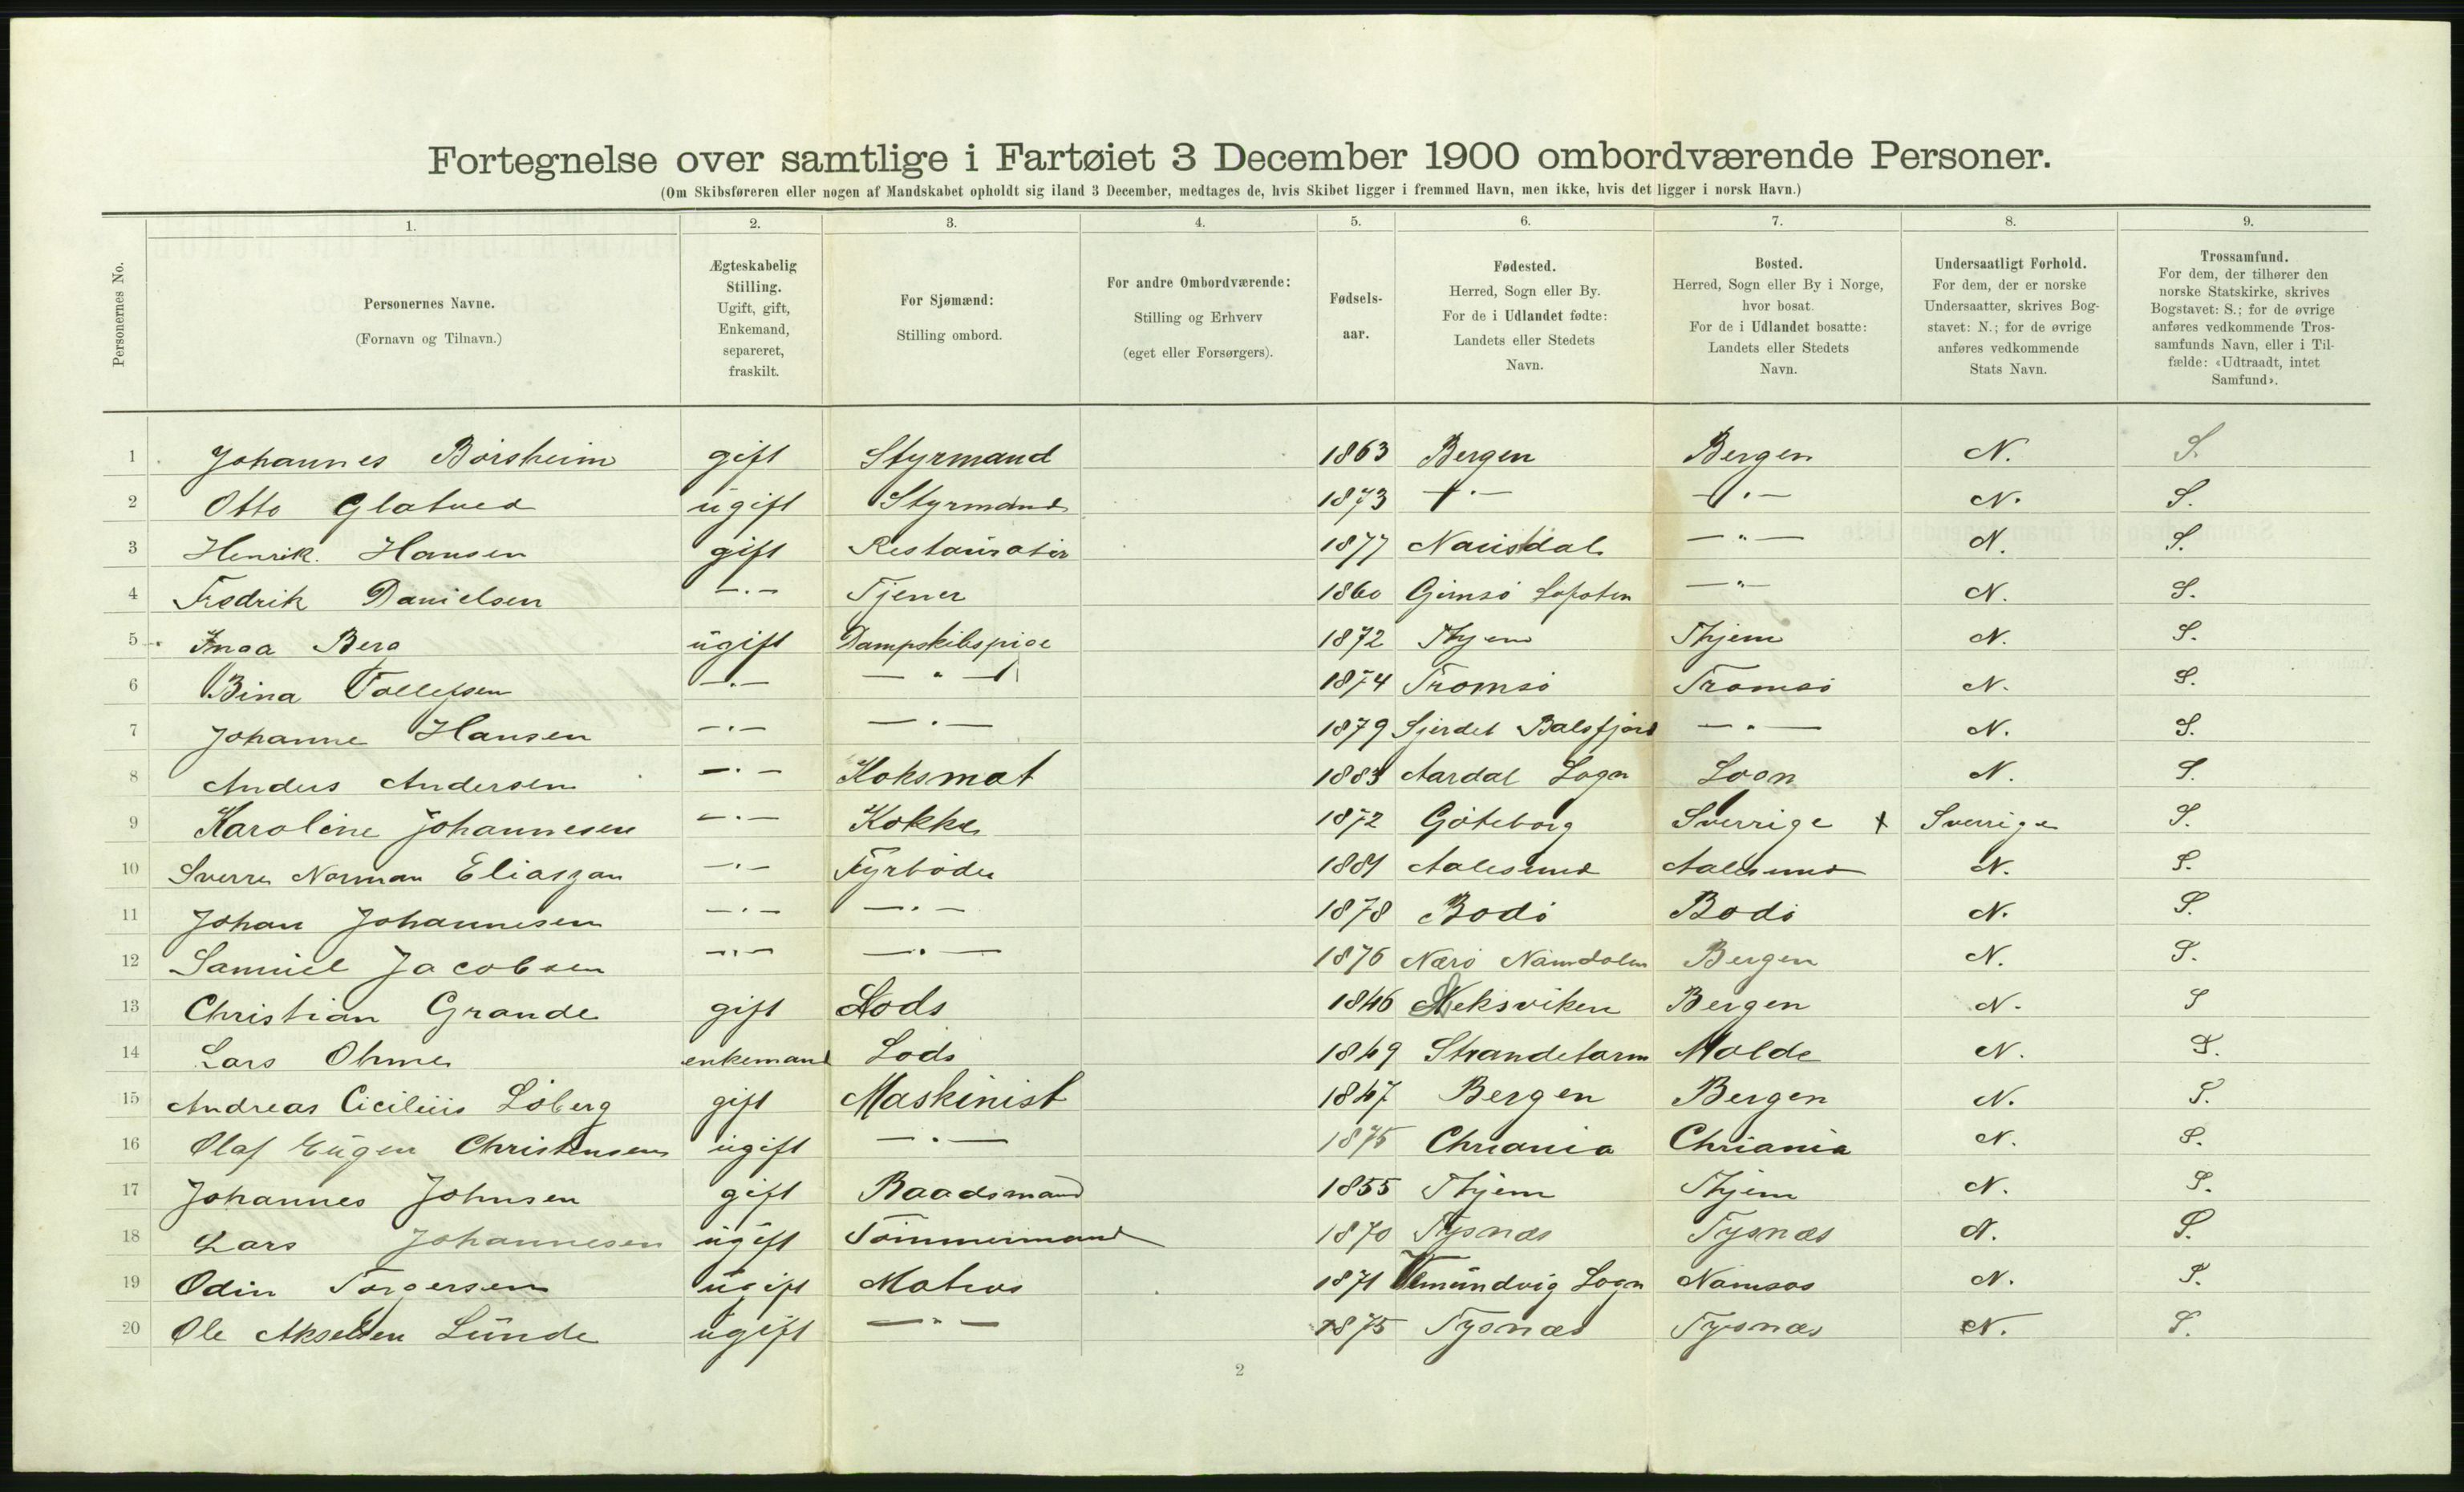 Fortegnelse over samtlige i Fartøiet 3 December 1900 ombordværende Personer.
(Om Skibsføreren eller nogen af Mandskabet opholdt sig iland 3 December, medtages de, hvis Skibet ligger i fremmed Havn, men ikke, hvis det ligger i norsk Havn.)
Personernes No.
1.
Personernes Navne.
(Fornavn og Tilnavn.)
2.
Ægteskabelig
Stilling.
Ugift, gift,
Enkemand,
separeret,
fraskilt.
3.
For Sjømænd:
Stilling ombord.
4.
For andre Ombordværende:
Stilling og Erhverv
(eget eller Forsørgers).
5.
Fødsels-
aar.
6.
Fødested.
Herred, Sogn eller By.
For de i Udlandet fødte:
Landets eller Stedets
Navn.
7.
Bosted.
Herred, Sogn eller By i Norge,
hvor bosat.
For de i Udlandet bosatte:
Landets eller Stedets
Navn.
8.
Undersaatligt Forhold.
For dem, der er norske
Undersaatter, skrives Bog-
stavet: N.; for de øvrige
anføres vedkommende
Stats Navn.
9.
Trossamfund.
For dem, der tilhører den
norske Statskirke, skrives
Bogstavet: S.; for de øvrige
anføres vedkommende Tros-
samfunds Navn, eller i Til-
fælde: «Udtraadt, intet
Samfund».
1 Johannes Børsheim gift Styrmand 1863 Bergen Bergen N. S.
2 Otto Glatved ugift Styrmand 1873 —"— —"— N. S.
3 Henrik Hansen gift Restauratør 1877 Naustdal —"— N. S.
4 Fredrik Danielsen —"— Tjener 1860 Gimsø Lofoten —"— N. S.
5 Inga Berg ugift Dampskibspige 1872 Thjem Thjem N. S.
6 Bina Tollefsen —"— —"— 1874 Tromsø Tromsø N. S.
7 Johanne Hansen —"— —"— 1879 Balsfjord —"— N. S.
8 Anders Andersen —"— Koksmat 1883 Aardal Sogn Sogn N. S.
9 Karoline Johannesen —"— Kokke 1872 Gøteborg Sverrige x Sverrige S.
10 Sverre Norman Eliaszan —"— Fyrbøder 1881 Aalesund Aalesund N. S.
11 Johan Johannesen —"— —"— 1878 Bodø Bodø N. S.
12 Samuel Jacobsen —"— —"— 1876 Nærø Namdalen Bergen N. S.
13 Christian Grande gift Lods 1846 Leksviken Bergen N. S
14 Lars Ohme enkemand Lods 1849 Strandebarm Molde N. S.
15 Andreas Cicilius Løberg gift Maskinist 1847 Bergen Bergen N. S.
16 Olaf Eugen Christensen ugift —"— 1875 Chriania Chriania N. S.
17 Johannes Johnsen gift Baadsmand 1855 Thjem Thjem N. S.
18 Lars Johannesen ugift Tømmermand 1870 Tysnæs Tysnæs N. S.
19 Odin Torgersen ugift Matros 1871 Sogn Namsos N. S.
20 Ole Akselsen Lunde ugift —"— 1875 Tysnæs Tysnæs N. S.
2